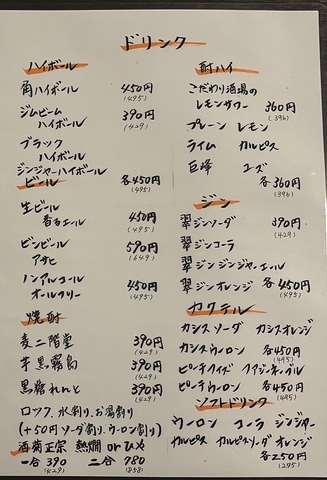 ドリンク
ハイボール
角ハイボール 450円
(495)
ジムビーム
ハイボール 390円
(429)
ブラック
ハイボール
ジンジャーハイボール 各450円
(495)
ビール
生ビール
香るエール 450円
(495)
ビンビール
アサヒ 590円
(649)
ノンアルコール
オールフリー 450円
(495)
焼酎
麦二階堂 390円
(429)
芋黒霧島 390円
(429)
黒糖れんと 390円
(429)
ロック、水割り、お湯割り
(+50円ソーダ割り、ウーロン割り)
酒 菊正宗 熱燗 or ひや
一合 390 二合 780
(429) (858)
酎ハイ
こだわり酒場の
レモンサワー 360円
(396)
プレーン レモン
ライム カルピス
巨峰 ユズ
各360円
(396)
ジン
翠ジンソーダ 390円
(429)
翠ジンコーラ
翠ジンジンジャーエール
翠ジンオレンジ 各450円
(495)
カクテル
カシスソーダ カシスオレンジ
カシスウーロン 各450円
(495)
ピーチフィズ ファジーネーブル
ピーチウーロン 各450円
(495)
ソフトドリンク
ウーロン コーラ ジンジャー
カルピス カルピスソーダ オレンジ
各250円
(275)